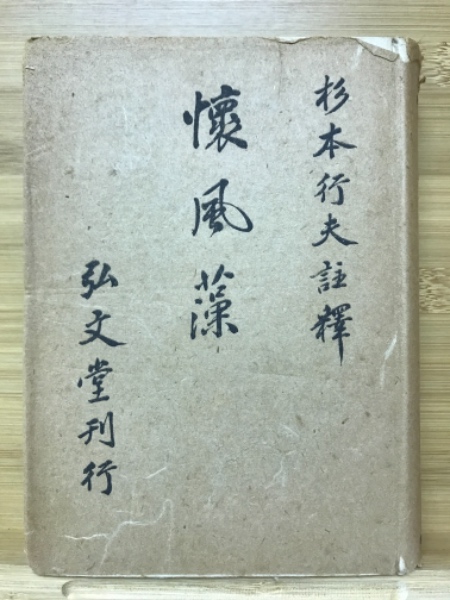 杉本行夫註釋
懷風藻
弘文堂刊行